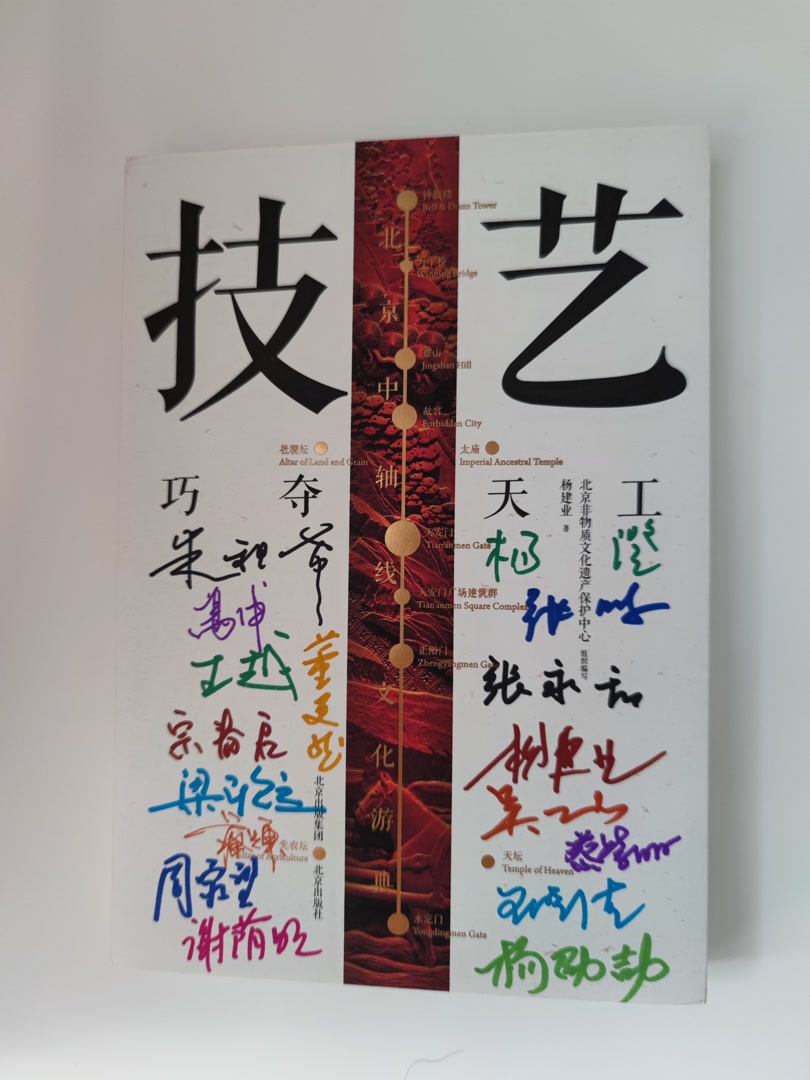 技艺
巧夺天工
北京中轴线文化游典
钟鼓楼
Bell & Drum Tower
万宁桥
Wanning Bridge
景山
Jingshan Hill
故宫
Forbidden City
社稷坛
Altar of Land and Grain
太庙
Imperial Ancestral Temple
天安门
Tian'anmen Gate
天安门广场建筑群
Tian'anmen Square Complex
正阳门
Zhengyangmen Gate
先农坛
Altar of Agriculture
天坛
Temple of Heaven
永定门
Yongdingmen Gate
北京非物质文化遗产保护中心 组织编写
杨建业 著
北京出版集团
北京出版社
王越
宗春启
周家望
谢荫明
张永和